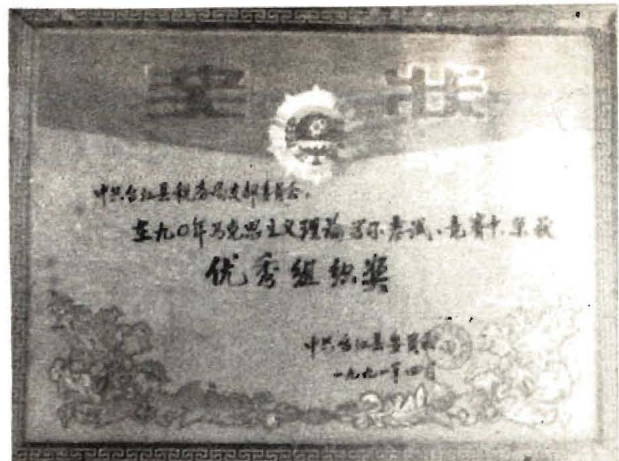 奖状
中共台江县税务局支部委员会：
在九〇年马克思主义理论学习考试、竞赛中,荣获
优秀组织奖
中共台江县委员会
一九九一年四月